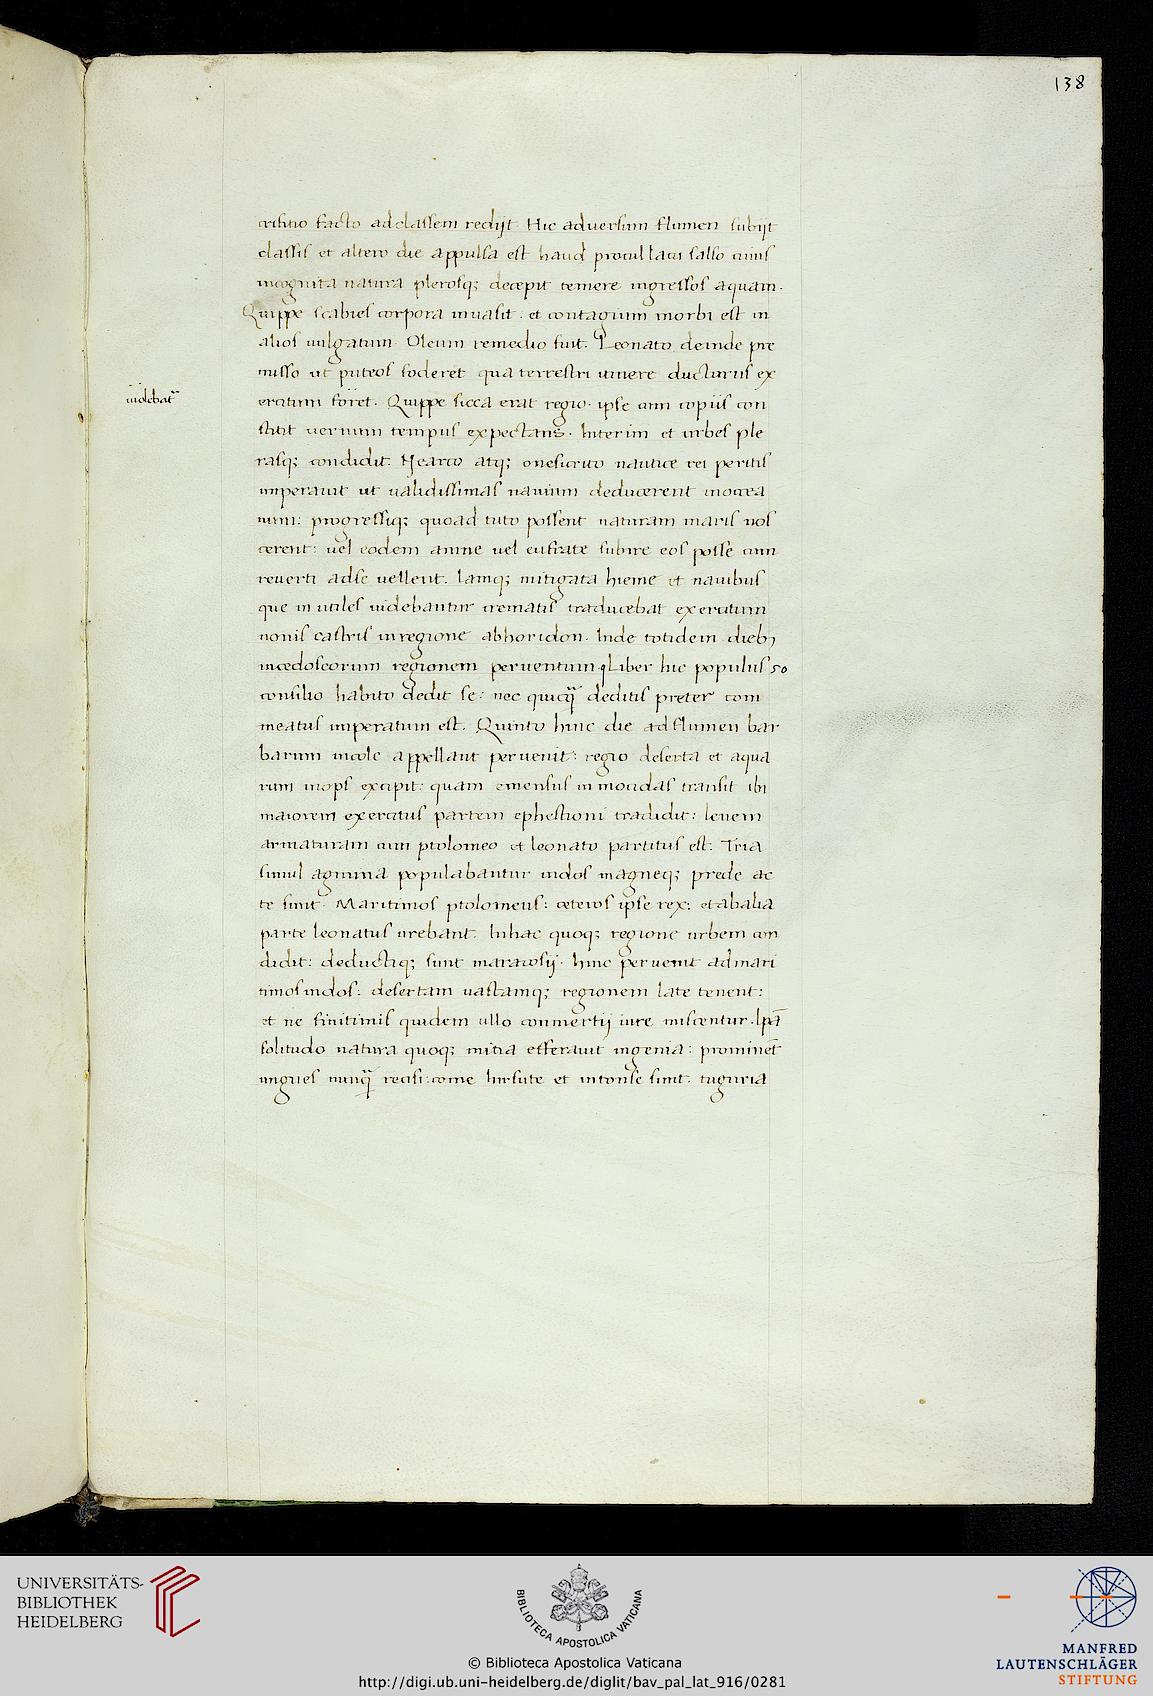 138
crifitio facto adclassem redijt Hic adversum flumen subijt
classis et altero die appulsa est haud procul lacu salso cuius
incognita natura plerosq; decepit temere ingressos aquam.
Quippe scabies corpora inuasit. et contagium morbi est in
alios uulgatum. Oleum remedio fuit. Leonato deinde pre
misso ut puteos foderet qua terrestri itinere ducturus ex
uidebat᷑
ercitum foret. Quippe sicca erat regio. ipse cum copiis con
stitit uernum tempus expectans. Interim et urbes ple
rasq; condidit. Nearco atq; onesicrito nautice rei peritis
imperauit ut ualidissimas nauium deducerent inocea
num: progressiq; quoad tuto possent naturam maris nos
cerent: uel eodem amne uel eufrate subire eos posse cum
reuerti adse uellent. Iamq; mitigata hieme et nauibus
que in utiles uidebantur crematis traducebat exercitum
nonis castris inregione abhoridon. Inde totidem dieb;
incedoseorum regionem peruentum. Liber hic populus 50
consilio habito dedit se: nec quicq̃ deditis preter com
meatus imperatum est. Quinto hinc die ad flumen bar
barum incole appellant peruenit: regio deserta et aqua
rum inops excipit: quam emensus in moridas transit ibi
maiorem exercitus partem ephestioni tradidit: leuem
armaturam cum ptolomeo et leonato partitus est. Tria
simul agmina populabantur indos magneq; prede ac
te sunt. Maritimos ptolomeus: ceteros ipse rex: et abalia
parte leonatus urebant. Inhac quoq; regione urbem con
didit: deductiq; sunt maracosij. hinc peruenit admari
timos indos: desertam uastamq; regionem late tenent:
et ne finitimis quidem ullo conmertij iure miscentur. Ipã
solitudo natura quoq; mitia efferauit ingenia: prominet̃
ungues nunq̃ recisi: come hirsute et intonse sunt. tuguria
UNIVERSITÄTS-
BIBLIOTHEK
HEIDELBERG
BIBLIOTECA APOSTOLICA VATICANA
© Biblioteca Apostolica Vaticana
http://digi.ub.uni-heidelberg.de/diglit/bav_pal_lat_916/0281
MANFRED
LAUTENSCHLÄGER
STIFTUNG